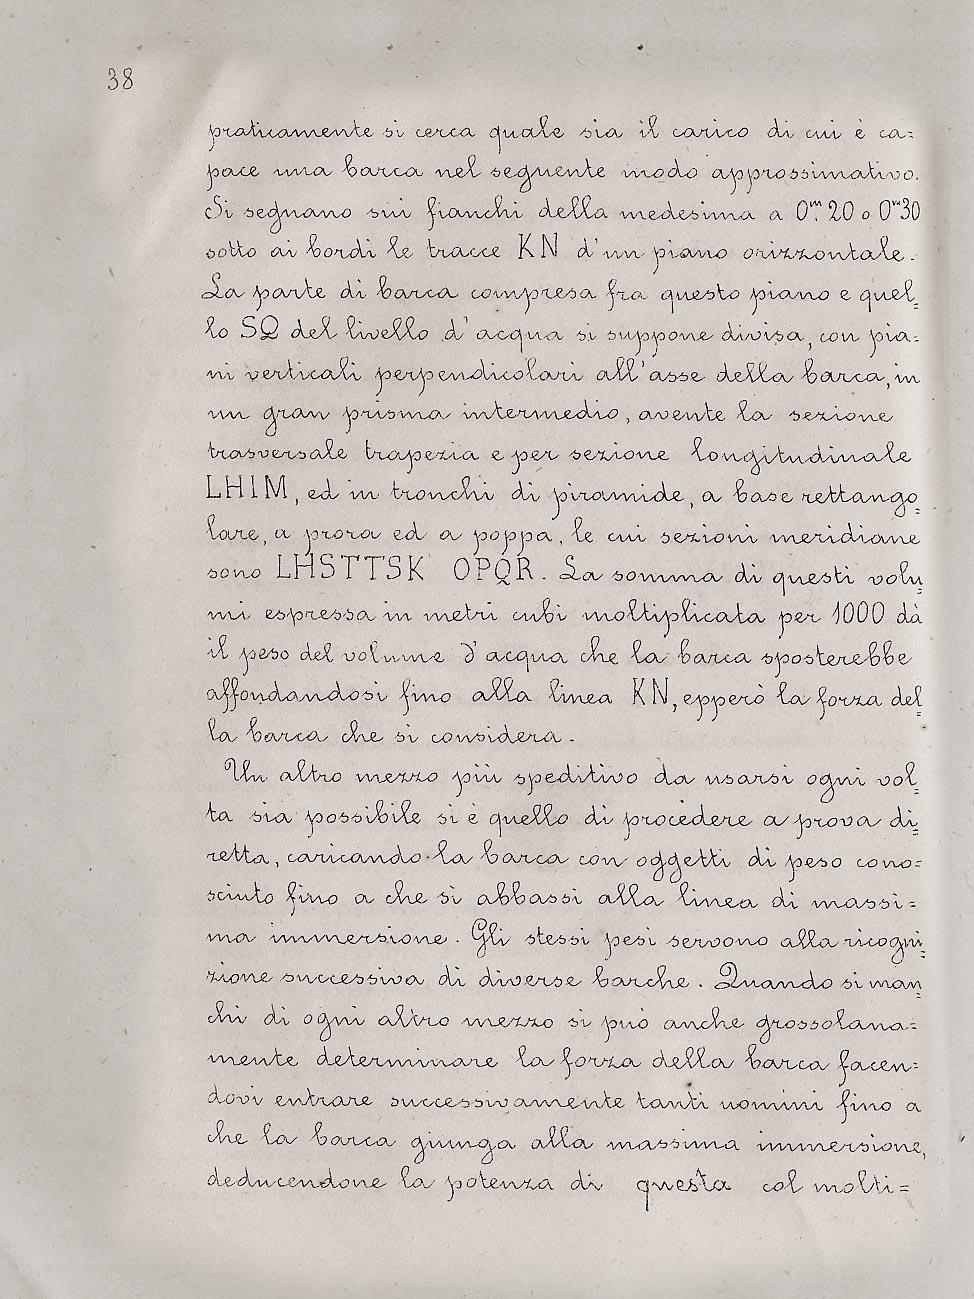 38
praticamente si cerca quale sia il carico di cui è ca=
pace una barca nel seguente modo approssimativo.
Si segnano sui fianchi della medesima a 0m. 20 o 0m 30
sotto ai bordi le tracce KN d'un piano orizzontale.
La parte di barca compresa fra questo piano e quel=
lo SQ del livello d'acqua si suppone divisa, con pia=
ni verticali perpendicolari all'asse della barca, in
un gran prisma intermedio, avente la sezione
trasversale trapezia e per sezione longitudinale
LHIM, ed in tronchi di piramide, a base rettango=
lare, a prora ed a poppa, le cui sezioni meridiane
sono LHSTTSK OPQR. La somma di questi volu=
mi espressa in metri cubi moltiplicata per 1000 dà
il peso del volume d'acqua che la barca sposterebbe
affondandosi fino alla linea KN, epperò la forza del=
la barca che si considera.
Un altro mezzo più speditivo da usarsi ogni vol=
ta sia possibile si è quello di procedere a prova di=
retta, caricando la barca con oggetti di peso cono=
sciuto fino a che si abbassi alla linea di massi=
ma immersione. Gli stessi pesi servono alla ricogni=
zione successiva di diverse barche. Quando si man=
chi di ogni altro mezzo si può anche grossolana=
mente determinare la forza della barca facen=
dovi entrare successivamente tanti uomini fino a
che la barca giunga alla massima immersione,
deducendone la potenza di questa col molti=